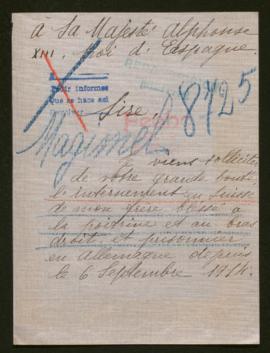 à Sa Majesté Alphonse
XIII. Roi d'Espagne.
Pedir informes
Que se hace así
8725
Sire
Maginel
Je viens solliciter
de votre grande bonté
l'internement en Suisse
de mon frère blessé à
la poitrine et au bras
droit et prisonnier
en Allemagne depuis
le 6 Septembre 1914.